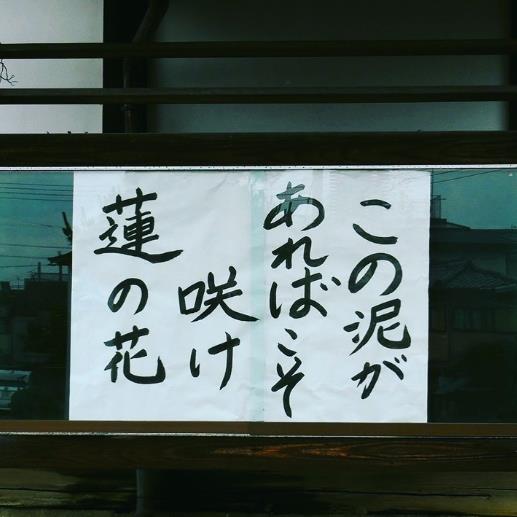 この泥が
あればこそ
咲け
蓮の花